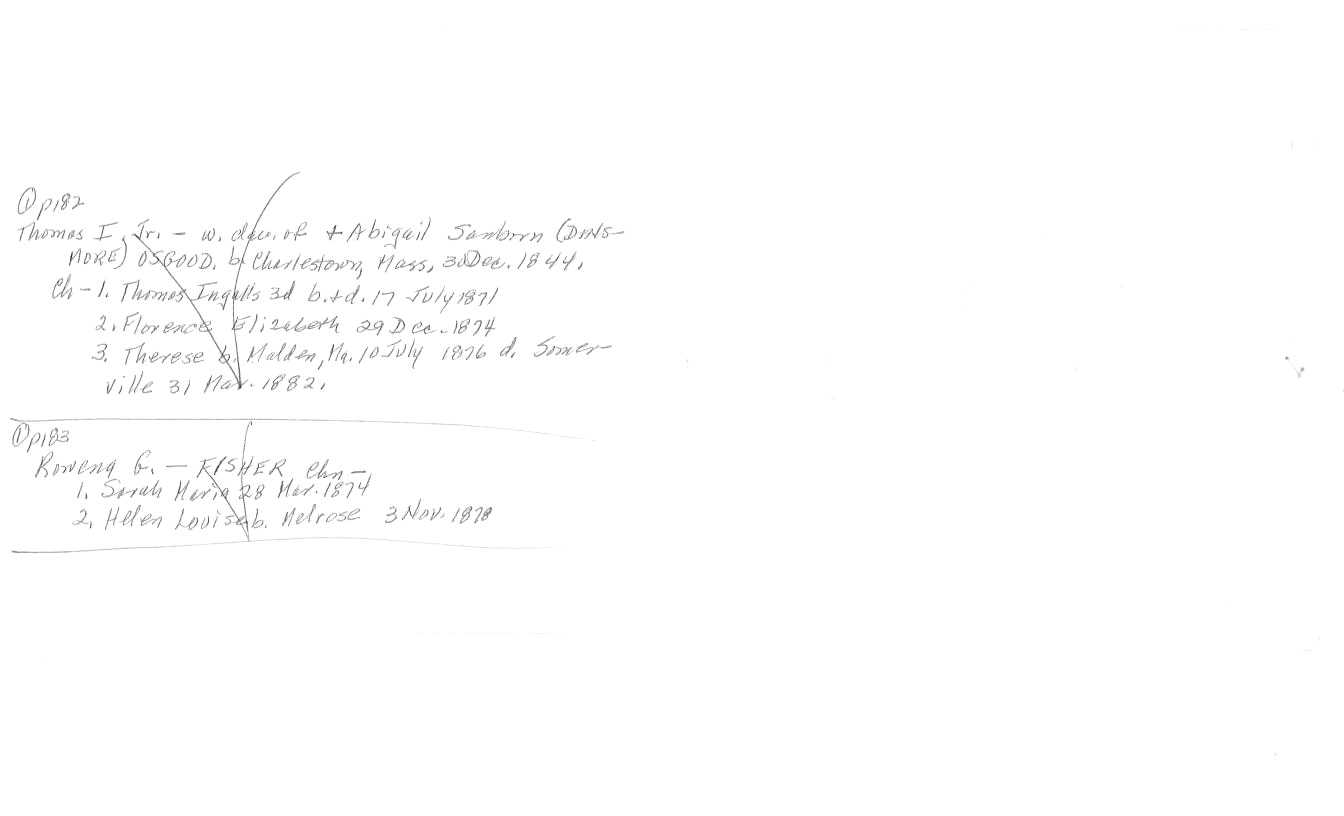 ① p182
Thomas I. Jr. – w. dau. of + Abigail Sanborn (DINS-
MORE) OSGOOD. b. Charlestown, Mass, 30 Dec. 1844.
Ch – 1. Thomas Ingalls 3d b. + d. 17 July 1871
2. Florence Elizabeth 29 Dec. 1874
3. Therese b. Malden, Ma. 10 July 1876 d. Somer-
ville 31 Mar. 1882.
① p183
Rowena G. – FISHER Chn –
1. Sarah Maria 28 Mar. 1874
2. Helen Louise b. Melrose 3 Nov. 1878